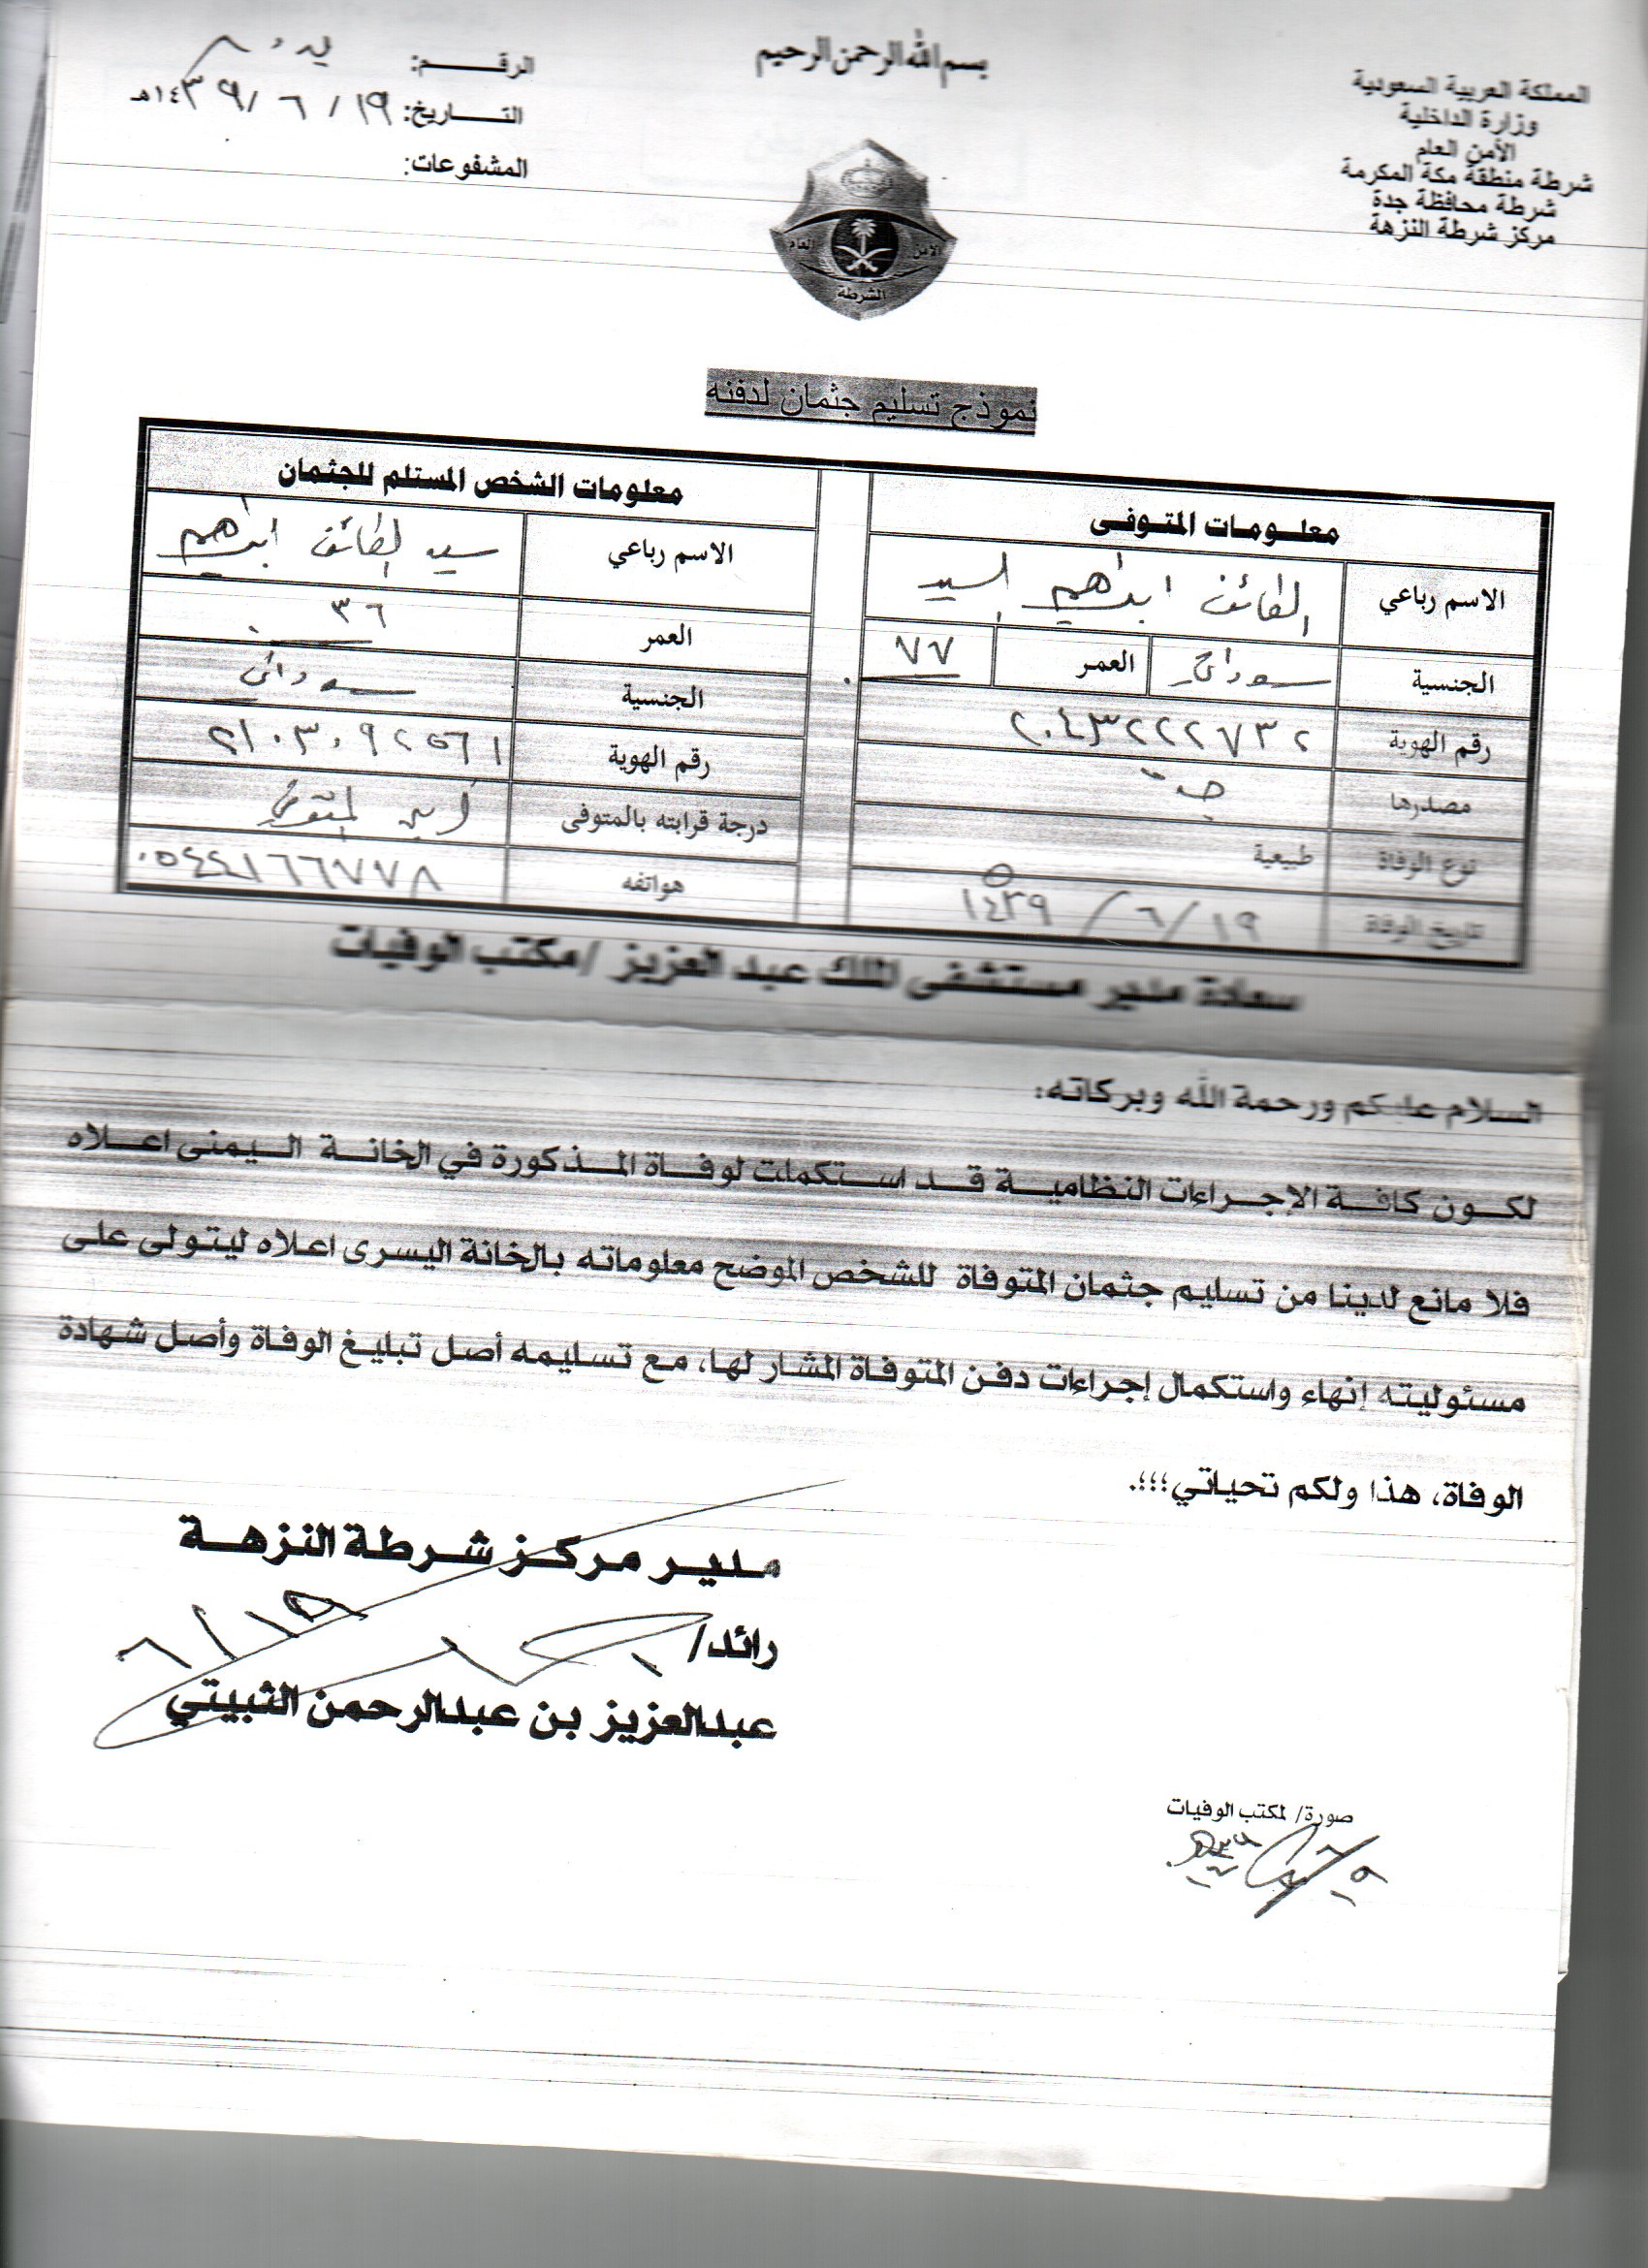 المملكة العربية السعودية
وزارة الداخلية
الأمن العام
شرطة منطقة مكة المكرمة
شرطة محافظة جدة
مركز شرطة النزهة
بسم الله الرحمن الرحيم
الرقـــــم:
التـــــاريخ: ١٩ / ٦ / ١٤٣٩هـ
المشفوعات:
الامن العام
الشرطه
نموذج تسليم جثمان لدفنه
معلـــومات المتـــوفى
الاسم رباعي الطائف ابراهيم السيد
الجنسية سوداني العمر ٧٧
رقم الهوية ٢٠٤٣٢٢٢٧٣٢
مصدرها جدة
نوع الوفاة طبيعية
تاريخ الوفاة ١٩ / ٦ / ١٤٣٩ ه
معلومات الشخص المستلم للجثمان
الاسم رباعي سيد الطائف ابراهيم
العمر ٣٦
الجنسية سوداني
رقم الهوية ٢١٠٣٠٩٢٥٦١
درجة قرابته بالمتوفى ابن المتوفي
هواتفه ٠٥٤٤١٦٦٧٧٨
سعادة مدير مستشفى الملك عبد العزيز /مكتب الوفيات
السلام عليكم ورحمة الله وبركاته:
لكــون كافــة الإجــراءات النظاميــة قــد استكملت لوفــاة المــذكورة في الخانــة اليــمنى اعــلاه
فلا مانع لدينا من تسليم جثمان المتوفاة للشخص الموضح معلوماته بالخانة اليسرى اعلاه ليتولى على
مسئوليته إنهاء واستكمال إجراءات دفن المتوفاة المشار لها، مع تسليمه أصل تبليغ الوفاة وأصل شهادة
الوفاة، هذا ولكم تحياتي؛؛؛.
مـديـر مركـز شـرطـة النزهـة
رائد/
١٩ / ٦
عبدالعزيز بن عبدالرحمن الثبيتي
صورة/ لمكتب الوفيات